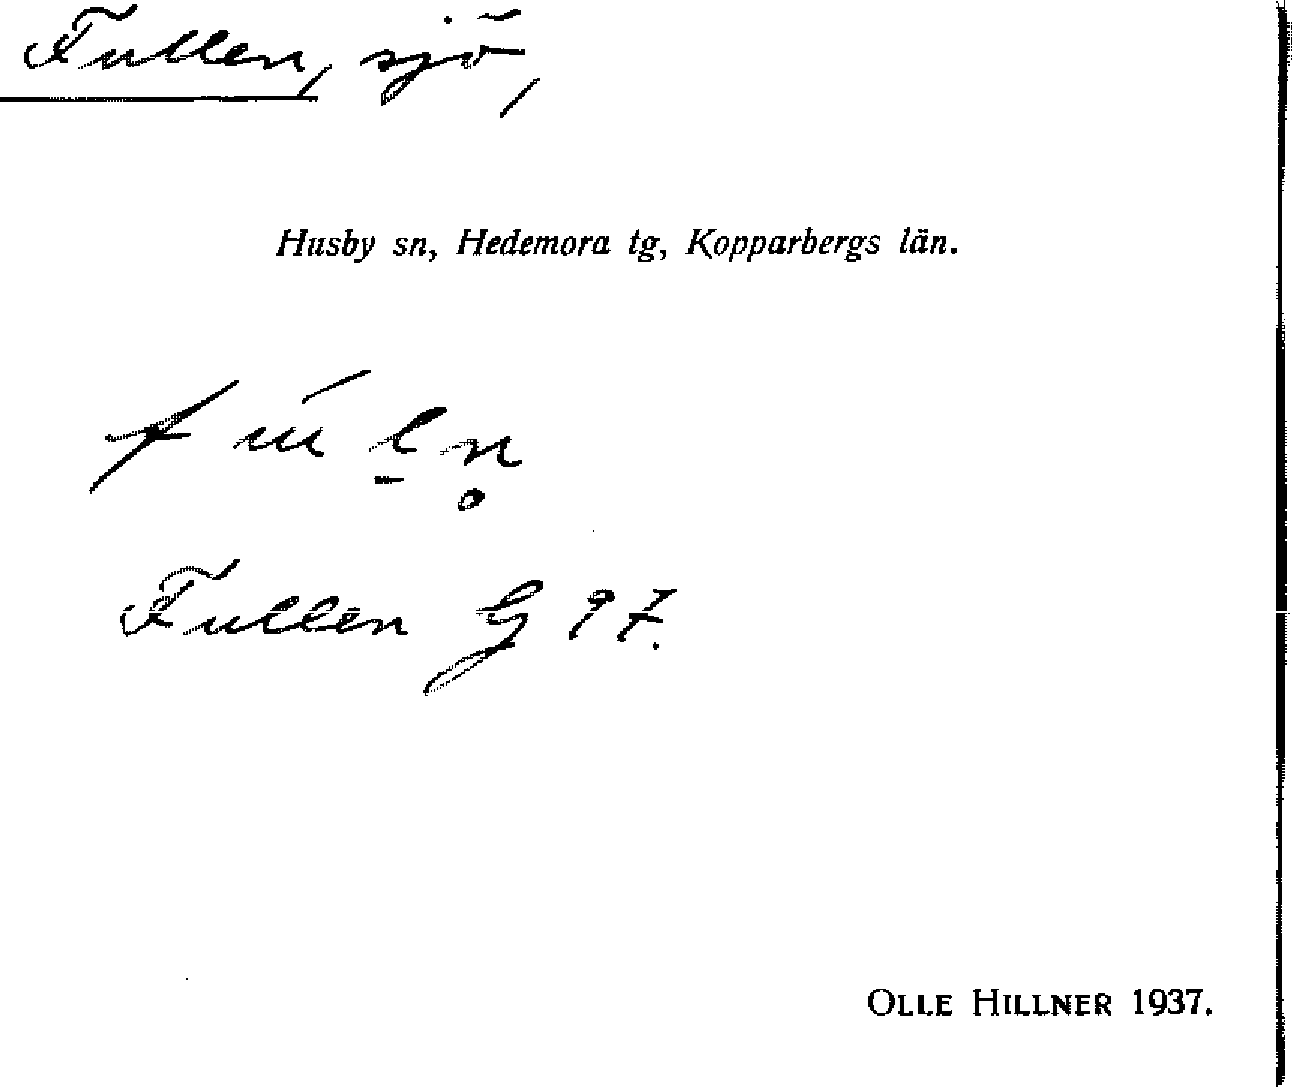 Fullen, sjö,
Husby sn, Hedemora tg, Kopparbergs län.
fúl̠n̥
Fullen G 97.
OLLE HILLNER 1937.